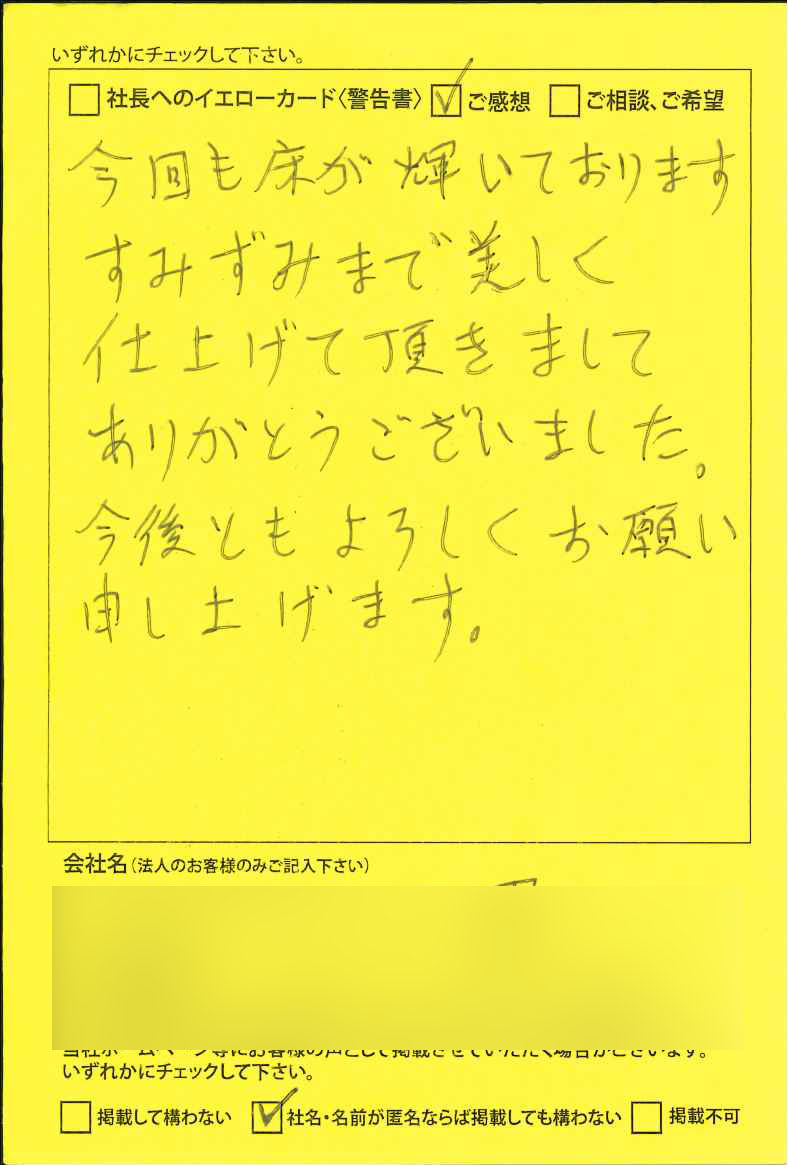 いずれかにチェックして下さい。
□ 社長へのイエローカード〈警告書〉 ☑ ご感想 □ ご相談、ご希望
今回も床が輝いております
すみずみまで美しく
仕上げて頂きまして
ありがとうございました。
今後ともよろしくお願い
申し上げます。
会社名(法人のお客様のみご記入下さい)
当社ホームページ等にお客様の声として掲載させていただく場合がございます。
いずれかにチェックして下さい。
□ 掲載して構わない ☑ 社名・名前が匿名ならば掲載しても構わない □ 掲載不可